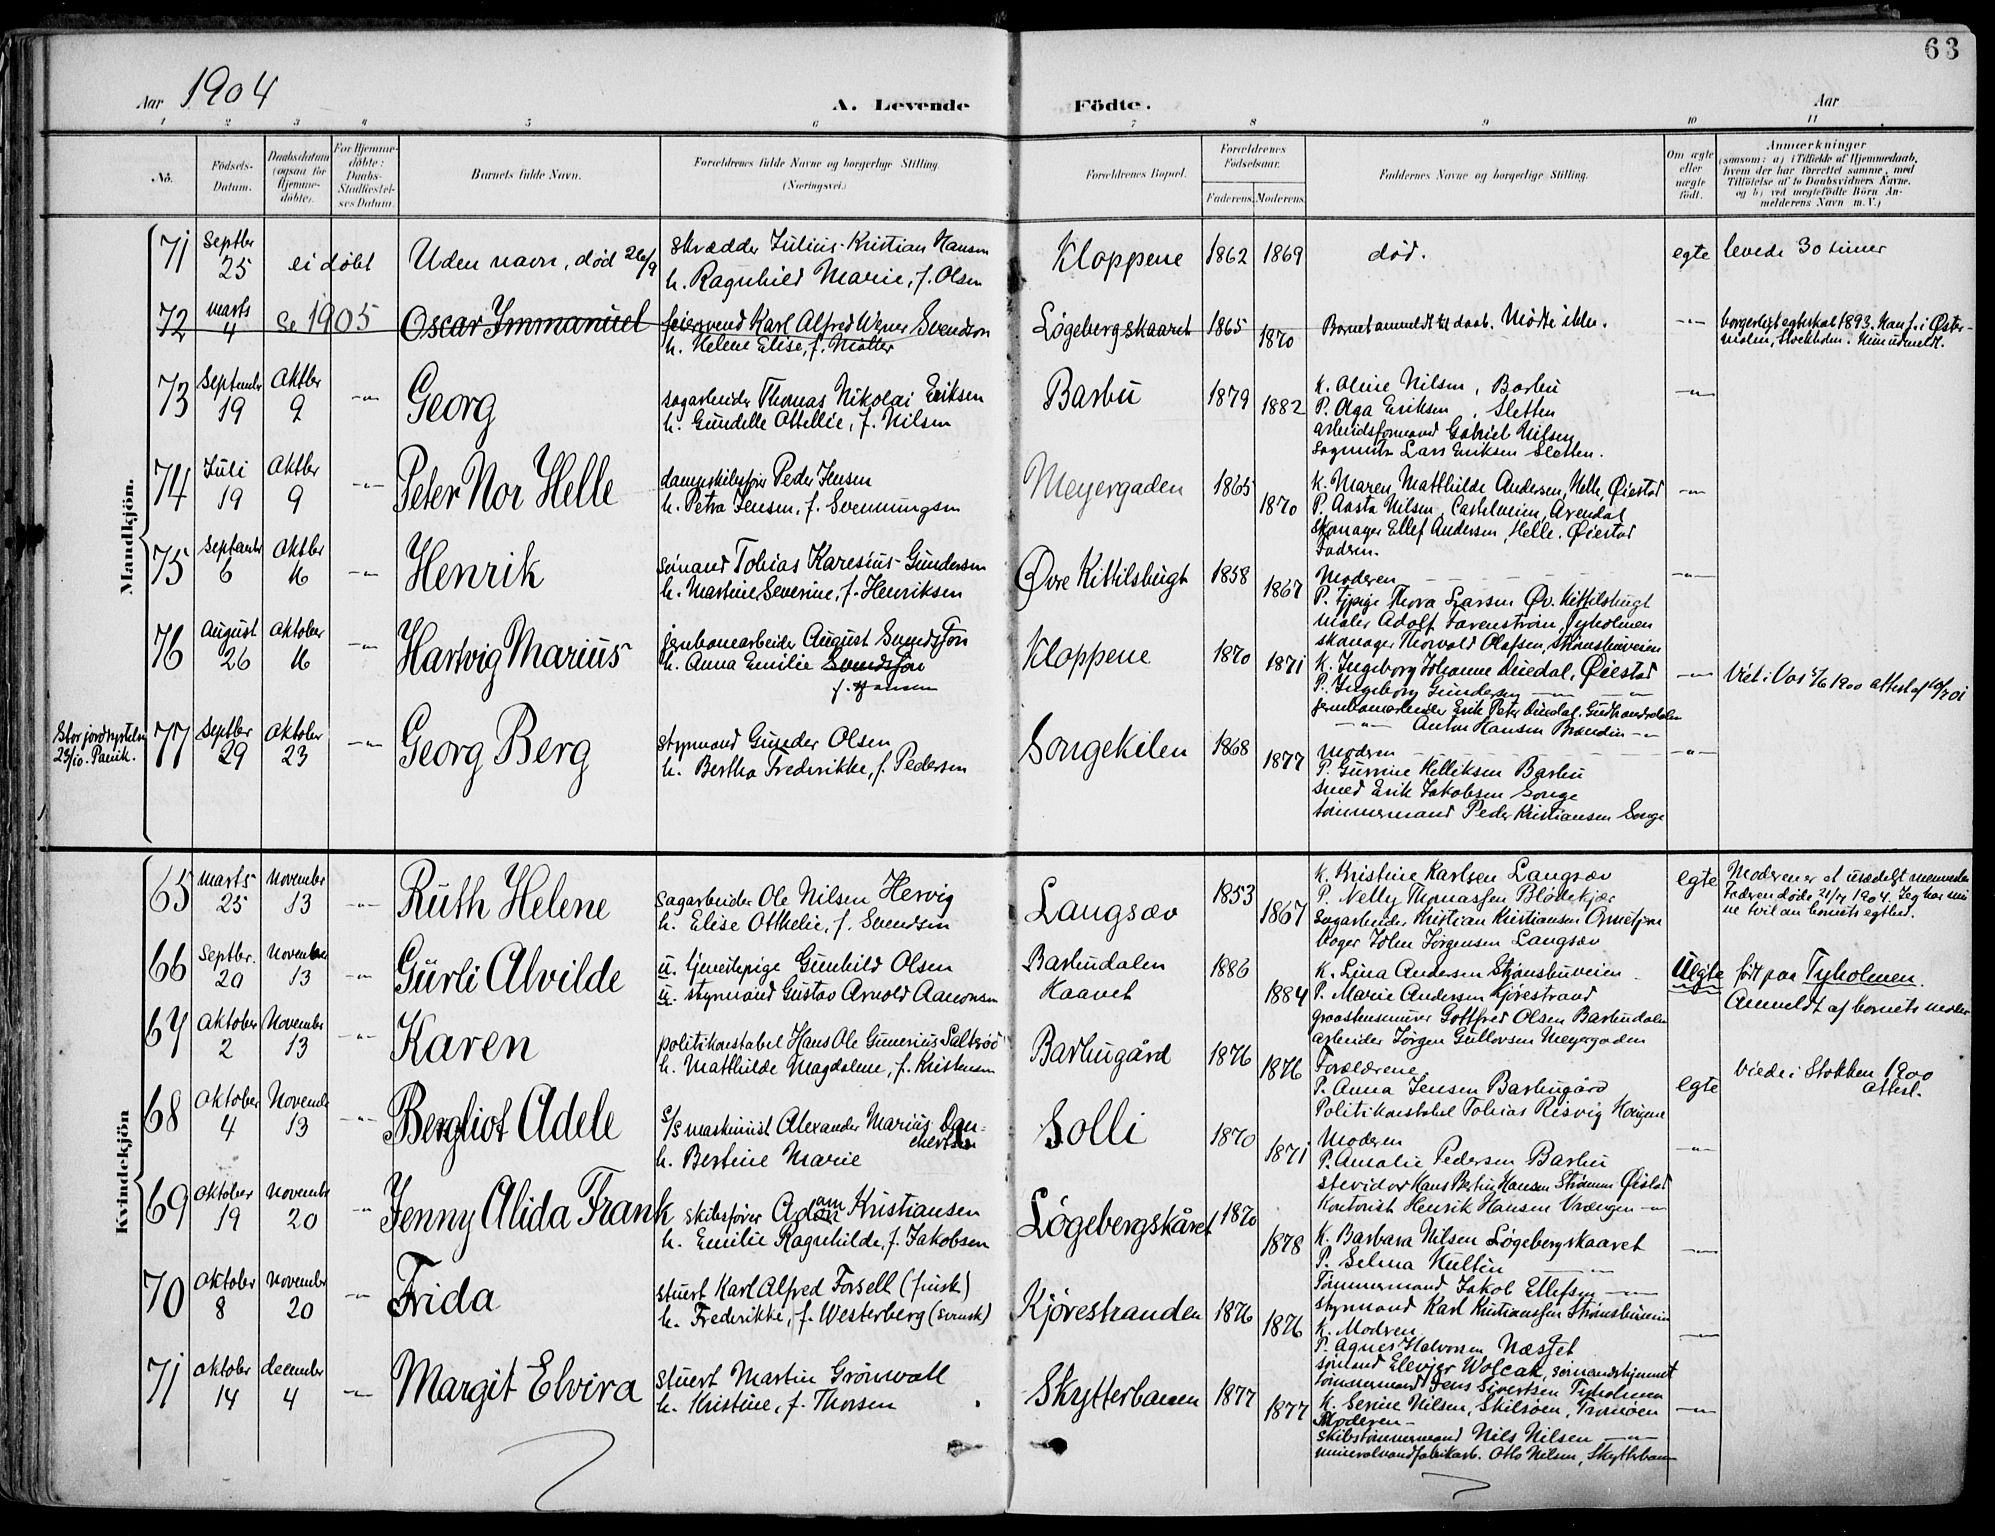 63
Aar 1904
A. Levende Födte.
Aar
1 2 3 4 5 6 7 8 9 10 11
No.
Födsels-Datum.
Daabsdatum (ogsaa for Hjemme-døbte).
For Hjemme-døbte: Daabs-Stadfæstel-ses Datum.
Barnets fulde Navn.
Forældrenes fulde Navne og borgerlige Stilling. (Næringsvei.)
Forældrenes Bopæl.
Forældrenes Födselsaar.
Faderens. Moderens.
Faddernes Navne og borgerlige Stilling.
Om ægte eller uægte födt.
Anmærkninger
(saasom: a) i Tilfælde af Hjemmedaab,
hvem der har forrettet samme, med
Tilföielse af to Daabsvidners Navne.
og b) ved uægtefödte Börn An-
melderens Navn m. V.)
Mandkjön.
71 Septbr 25 ei døbt Uden navn, død 26/9
skrædder Julius Kristian Hansen
h. Ragnhild Marie, f. Olsen
Kloppene 1862 1869 død. egte levede 30 timer
72 marts 4 Se 1905 Oscar Immanuel
feiersvend Karl Alfred Werner Svendsen
h. Helene Elise, f. Møller
Løgebergskaaret 1865 1870 Barnet anmeldt til daab. Mødte ikke. -"-
borgerligt egteskab 1893. Han f. i Øster-
malm, Stockholm. Hun udmeldt.
73 September 19 Oktbr 9 -"- Georg
sagarbeider Thomas Nikolai Eriksen
h. Gundelle Ottellie, f. Nilsen
Barbu 1879 1882
K. Oline Nilsen, Barbu
P. Olga Eriksen, Sletten
arbeidsformand Gabriel Nilsen
Sagmstr. Lars Eriksen Sletten.
-"-
74 Juli 19 Oktbr 9 -"- Peter Nor Helle
dampskibsfører Peder Jensen
h. Petra Jensen, f. Svenningsen
Meyergaden 1865 1870
K. Maren Matthilde Andersen, Helle, Øiestad
P. Aasta Nilsen, Arendal
Skomager Ellef Andersen, Helle. Øiestad
Fadren.
-"-
75 September 6 Oktbr 16 -"- Henrik
sømand Tobias Karesius Gundersen
h. Martine Severine, f. Henriksen
Øvre Kittilsbugt 1858 1867
Moderen
P. Tjpige Thora Larsen Øv. Kittilsbugt
maler Adolf Farenstrøm, Tyholmen
skomager Thorvald Olafsen, Strømsbuveien
-"-
76 August 26 Oktober 16 -"- Hartvig Marius
jernbanearbeider August Svendsson
h. Anna Emilie Svendsson
f. Hansen
Kloppene 1870 1871
K. Ingeborg Johanne Duedal, Øiestad
P. Ingeborg Gundersen -"- -"-
jernbanearbeider Erik Peter Duedal, Gudbrandsdalen
-"- Anton Hansen Brændin -"-
-"- Viet i Vos 5/6 1900 attest af
77 Septbr 29 Oktober 23 -"- Georg Berg
Stor jordrystelse
23/10. Panik.
styrmand Gunder Olsen
h. Bertha Frederikke, f. Pedersen
Songekilen 1868 1877
Modren
P. Gurine Helliksen Barbu
smed Erik Jakobsen Songe
tømmermand Peder Kristiansen Songe
-"-
Kvindekjön
65 marts 25 November 13 -"- Ruth Helene
Sagarbeider Ole Nilsen Hervig
h. Elise Otthelie, f. Svendsen
Langsæv 1853 1867
K. Kristine Karlsen Langsæv
P. Nelly Thomassen Blødekjær
Sagarbeider Kristian Kristiansen
bager John Jørgensen Langsæv
egte
Moderen er et usædeligt menneske
Faderen døde 21/7 1904. Jeg har min-
ne tvil om barnets egthed.
66 Septbr. 20 November 13 -"- Gurli Alvilde
u. tjenestepige Gunhild Olsen
u. styrmand Gustav Arnold Aanonsen
Barbudalen
Kaaret
1886 1884
K. Lina Andersen Strømsbuveien
P. Marie Andersen Kjørestrand
graastensmurer Gottfred Olsen Barbudalen
arbeider Jørgen Gullovsen Meyergaden
Uegte
født paa Tyholmen.
Anmeldt af barnets moder
67 Oktober 2 November 13 -"- Karen
politikonstabel Hans Ole Gunerius Saltrød
h. Matthilde Magdalene, f. Kristensen
Barbugård 1876 1876
Forældrene
P. Anna Jensen Barbugård
Politikonstabel Tobias Risvig
egte
viede i Stokken 1900
attest.
68 Oktober 4 Novembr 13 -"- Bergliot Adele
S/S maskinist Alexander Marius Dan-
chertsen
h. Bertine Marie
Solli 1870 1871
Moderen
P. Amalie Pedersen Barbu
stevidor Hans Bertin Hansen Strømmen Øiestad
Kontorist Henrik Hansen Vrængen -"-
-"-
69 Oktober 19 November 20 -"- Jenny Alida Frank
skibsfører Adam Kristiansen
h. Emilie Ragnhilde, f. Jakobsen
Løgebergskåret 1870 1878
K. Barbara Nilsen Løgebergskaaret
P. Selma Hultin -"-
Tømmermand Jakob Ellefsen -"-
styrmand Karl Kristianssen
-"-
70 Oktober 8 November 20 -"- Frida
stuert Karl Alfred Forsell (finsk)
h. Frederikke, f. Westerberg (svensk)
Kjørestranden 1876 1876
K. Modren
P. Agnes Halvorsen Næsset
sømand Elevier Wolcak, sømandshjemmet
tømmermand Jens Sivertsen Tyholmen
-"-
71 Oktober 14 december 4 -"- Margit Elvira
stuert Martin Grønvall
h. Kristine, f. Thorsen
Skytterbanen 1877 1877
K. Serine Nilsen, Skilsøen, Tromøen
Moderen -
skibstømmermand Nils Nilsen -"-
mineralvandfabrikarb. Otto Nilsen, Skytterbanen
-"-